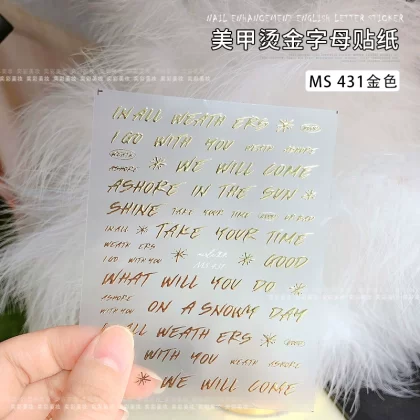 NAIL ENHANCEMENT ENGLISH LETTER STICKER
美甲烫金字母贴纸
MS 431金色
IN ALL WEATH ERS
I GO WITH YOU WEATH ASHORE
WEATH ASHORE WE WILL COME
ASHORE IN THE SUN
SHINE TAKE YOUR TIME GOOD
IN ALL TAKE YOUR TIME
WEATH ERS
I GO WITH YOU GOOD
WHAT WILL YOU DO
ASHORE WITH YOU ON A SNOWY DAY
IN ALL WEATH ERS GOOD
WITH YOU WEATH ASHORE
WE WILL COME